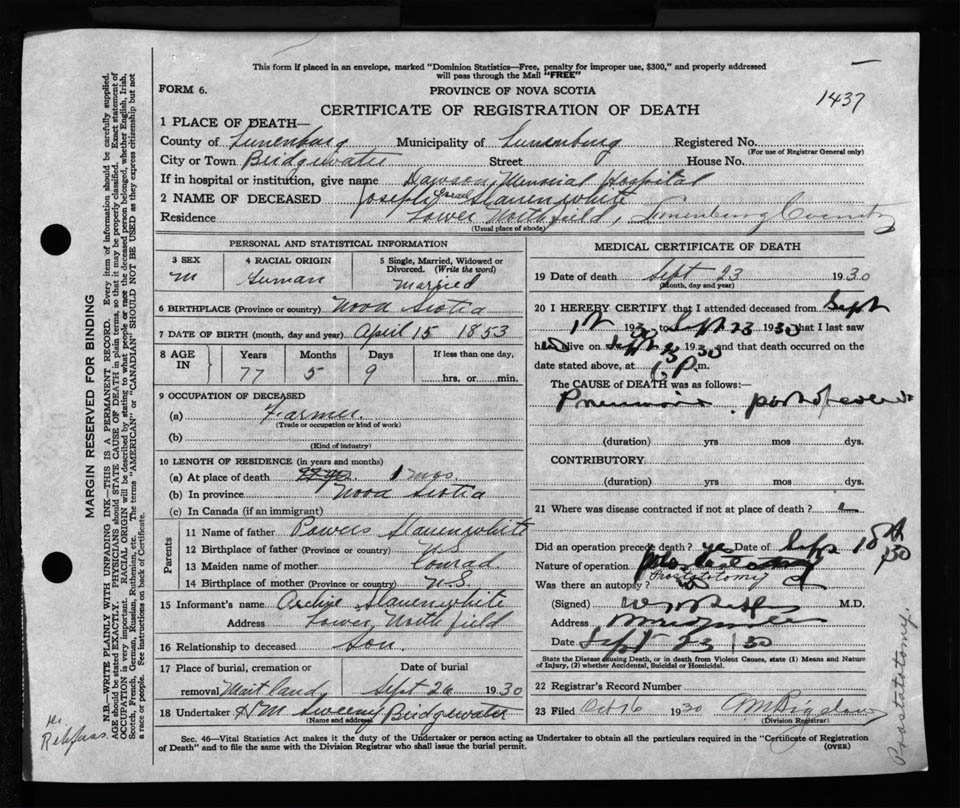 This form if placed in an envelope, marked "Dominion Statistics—Free, penalty for improper use, $300," and properly addressed
will pass through the Mail "FREE"
FORM 6.
PROVINCE OF NOVA SCOTIA
1437
CERTIFICATE OF REGISTRATION OF DEATH
1 PLACE OF DEATH—
County of Lunenburg Municipality of Lunenburg Registered No.
(For use of Registrar General only)
City or Town Bridgewater Street House No.
If in hospital or institution, give name Dawson Memorial Hospital
2 NAME OF DECEASED Joseph Slauenwhite
Residence Lower Northfield, Lunenburg County
(Usual place of abode)
PERSONAL AND STATISTICAL INFORMATION
3 SEX
M
4 RACIAL ORIGIN
German
5 Single, Married, Widowed or
Divorced. (Write the word)
Married
6 BIRTHPLACE (Province or country) Nova Scotia
7 DATE OF BIRTH (month, day and year) April 15 1853
8 AGE IN
Years Months Days If less than one day,
77 5 9 hrs. or min.
9 OCCUPATION OF DECEASED
(a) Farmer
(Trade or occupation or kind of work)
(b)
(Kind of industry)
10 LENGTH OF RESIDENCE (in years and months)
(a) At place of death 1 mos.
(b) In province Nova Scotia
(c) In Canada (if an immigrant)
Parents
11 Name of father Powers Slauenwhite
12 Birthplace of father (Province or country) N.S.
13 Maiden name of mother Conrad
14 Birthplace of mother (Province or country) N.S.
15 Informant's name Archie Slauenwhite
Address Lower Northfield
16 Relationship to deceased Son.
17 Place of burial, cremation or
removal Maitland
Date of burial
Sept 26 1930
18 Undertaker HM Sweeny Bridgewater
(Name and address)
MEDICAL CERTIFICATE OF DEATH
19 Date of death Sept 23 1930
(Month, day and year)
20 I HEREBY CERTIFY that I attended deceased from Sept
1st 1930 to Sept 23 1930 that I last saw
alive on Sept 23 1930 and that death occurred on the
date stated above, at P.m.
The CAUSE OF DEATH was as follows:—
Pneumonia
(duration) yrs mos dys.
CONTRIBUTORY
(duration) yrs mos dys.
21 Where was disease contracted if not at place of death?
Did an operation precede death? yes Date of Sept 18th 30
Nature of operation
Prostatotomy
Was there an autopsy?
(Signed) M.D.
Address Bridgewater
Date Sept 23 1930
State the Disease causing Death, or in death from Violent Causes, state (1) Means and Nature
of Injury, (2) whether Accidental, Suicidal or Homicidal.
22 Registrar's Record Number
23 Filed Oct 16 1930
(Division Registrar)
Sec. 46—Vital Statistics Act makes it the duty of the Undertaker or person acting as Undertaker to obtain all the particulars required in the "Certificate of Registration
of Death" and to file the same with the Division Registrar who shall issue the burial permit.
(OVER)
MARGIN RESERVED FOR BINDING
N.B.—WRITE PLAINLY WITH UNFADING INK—THIS IS A PERMANENT RECORD. Every item of information should be carefully supplied.
AGE should be stated EXACTLY. PHYSICIANS should STATE CAUSE OF DEATH in plain terms, so that it may be properly classified. Exact statement of
OCCUPATION is very important. RACIAL ORIGIN will be described by stating to what people or race the deceased person belonged, whether English, Irish,
Scotch, French, German, Russian, Ruthenian, etc. The terms "AMERICAN" or "CANADIAN" SHOULD NOT BE USED as they express citizenship but not
a race or people. See instructions on back of Certificate.
Prostatotomy.